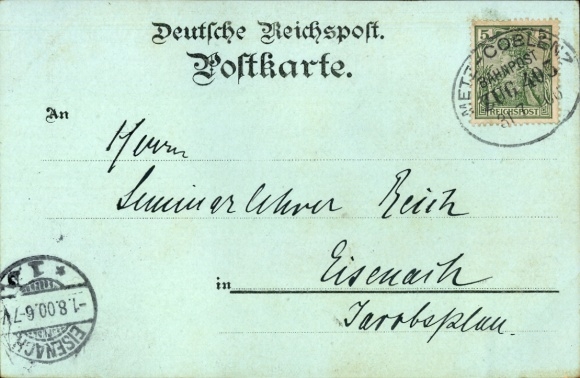 Deutsche Reichspost.
Postkarte.
5
REICHSPOST
METZ COBLENZ
BAHNPOST
ZUG 403
31 7 00
An
Herrn
Seminarlehrer Reich
in Eisenach
Jacobsplan.
EISENACH
-1.8.00.6-7V
* 1